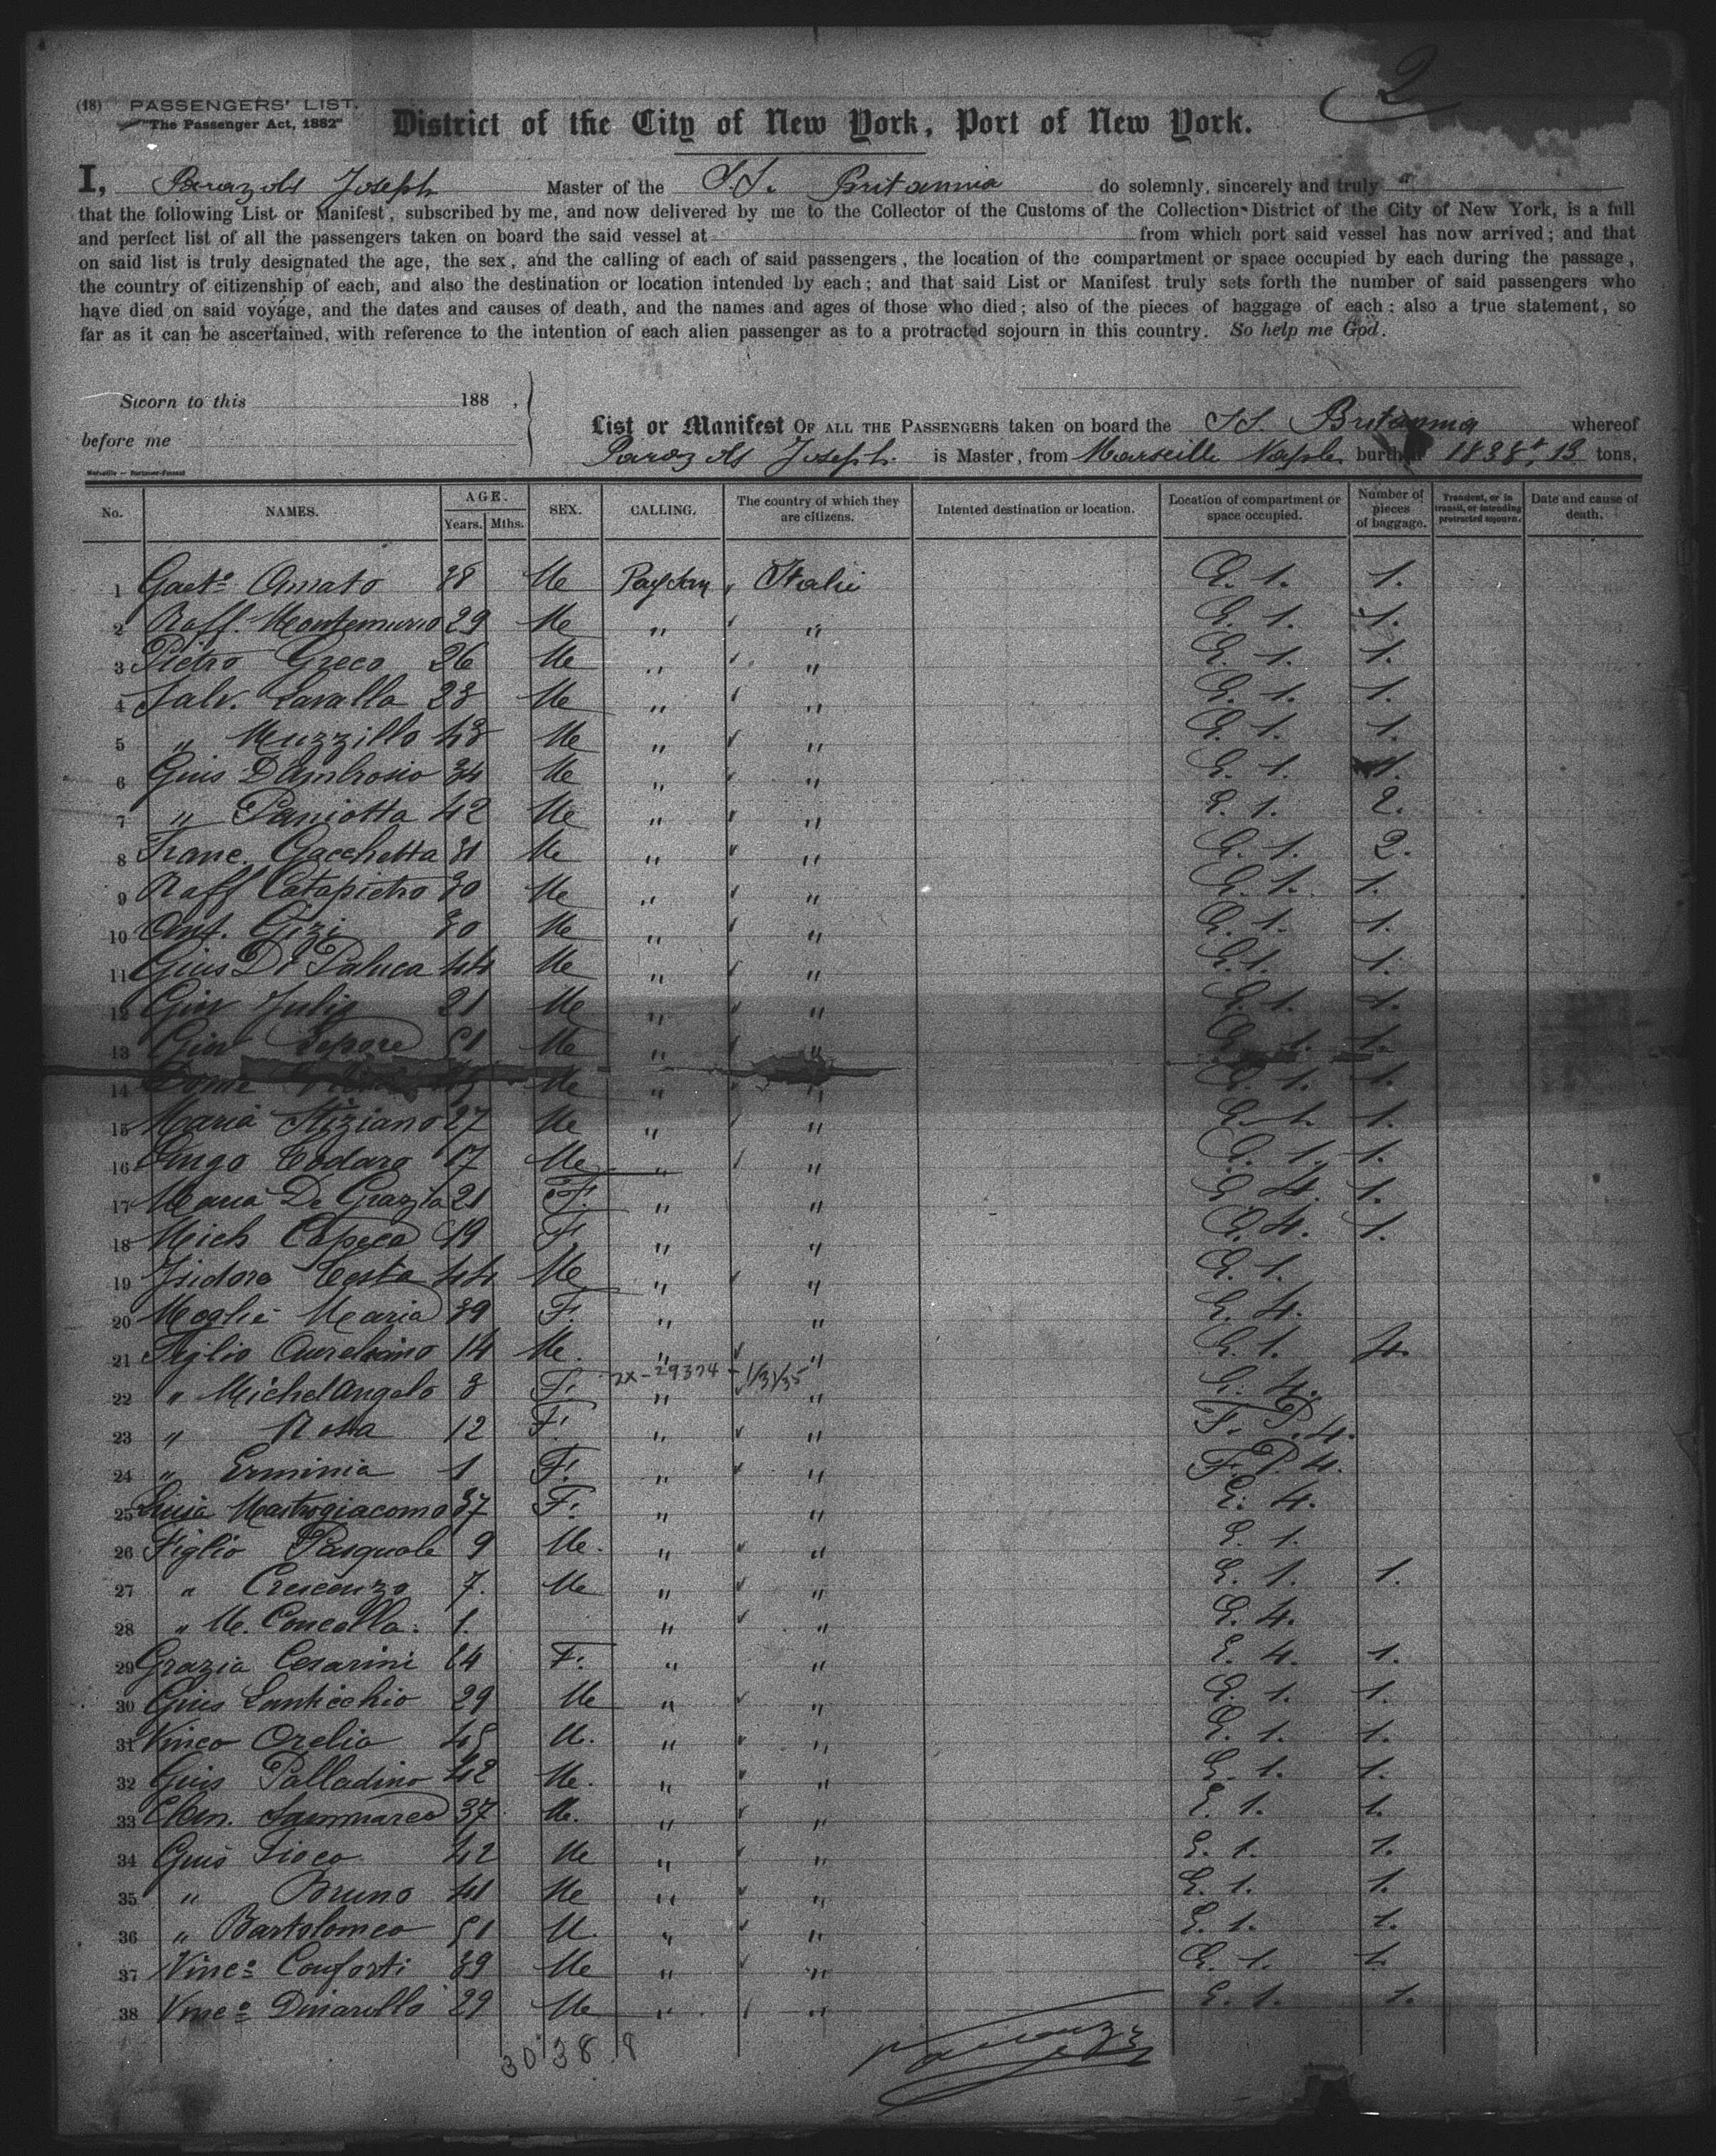 2
(18) PASSENGERS' LIST.
"The Passenger Act, 1882"
District of the City of New York, Port of New York.
I, Joseph Master of the S.S. Britannia do solemnly, sincerely and truly
that the following List or Manifest, subscribed by me, and now delivered by me to the Collector of the Customs of the Collection District of the City of New York, is a full
and perfect list of all the passengers taken on board the said vessel at from which port said vessel has now arrived; and that
on said list is truly designated the age, the sex, and the calling of each of said passengers, the location of the compartment or space occupied by each during the passage,
the country of citizenship of each, and also the destination or location intended by each; and that said List or Manifest truly sets forth the number of said passengers who
have died on said voyage, and the dates and causes of death, and the names and ages of those who died; also of the pieces of baggage of each: also a true statement, so
far as it can be ascertained, with reference to the intention of each alien passenger as to a protracted sojourn in this country. So help me God.
Sworn to this 188 ,
before me
List or Manifest OF ALL THE PASSENGERS taken on board the S.S. Britannia whereof
Joseph is Master, from Marseille Naples tons,
No. NAMES. AGE. Years. Mths. SEX. CALLING. The country of which they are citizens. Intented destination or location. Location of compartment or space occupied. Number of pieces of baggage. Transient, or in transit, or intending protracted sojourn. Date and cause of death.
1 Gaet° Amato 38 Me Italie E. 1. 1.
2 Raff. Montemurro 29 Me " " E. 1. 1.
3 Pietro Greco 26 Me " " E. 1. 1.
4 Salv. Lavalla 23 Me " " E. 1. 1.
5 " Muzzillo 43 Me " " E. 1. 1.
6 Gius D'Ambrosio 34 Me " " E. 1. 1.
7 " Paniotta 42 Me " " E. 1. 2.
8 Franc. Gacchetta 31 Me " " E. 1. 2.
9 Raff Catapietro 30 Me " " E. 1. 1.
10 Ant. Gizi 30 Me " " E. 1. 1.
11 Gius Di Paluca 44 Me " " E. 1. 1.
12 Giov Julig 21 Me " " E. 1. 1.
13 Giov Lepore 51 Me " " E. 1. 1.
14 Me " " E. 1. 1.
15 Maria Stiziano 27 Me " " E. 1. 1.
16 Codaro 17 Me " " E. 1. 1.
17 Maria De Grazia 21 F. " " E 4. 1.
18 Mich Capeca 19 F. " " E. 4. 1.
19 Isidoro Testa 44 Me " " E. 1.
20 Moglie Maria 39 F. " " E. 4.
21 Figlio Aureliano 14 Me. " " E. 1. 4.
22 " MichelAngelo 3 F. 2x-29374 - 1/31/35 " " E. 4.
23 " Rosa 12 F. " " F. P. 4.
24 " Erminia 1 F. " " F. P. 4.
25 Luisa Mastrogiacomo 37 F. " " E. 4.
26 Figlio Pasquale 9 Me. " " E. 1.
27 " Crescenzo 7. Me " " E. 1. 1.
28 " M. Concetta. 1. " " E. 4.
29 Grazia Cesarini 24 F. " " E. 4. 1.
30 Gius Lanticchio 29 Me " " E. 1. 1.
31 Vinco Orelia 45 M. " " E. 1. 1.
32 Gius Palladino 42 Me. " " E. 1. 1.
33 Sammarco 37 M. " " E. 1. 1.
34 Gius Fioco 42 Me " " E. 1. 1.
35 " Bruno 41 Me " " E. 1. 1.
36 " Bartolomeo 51 M. " " E. 1. 1.
37 Vinc° Conforti 39 Me " " E. 1. 1.
38 Vinc° Dinarullo 29 Me " " E. 1. 1.
30 38 8